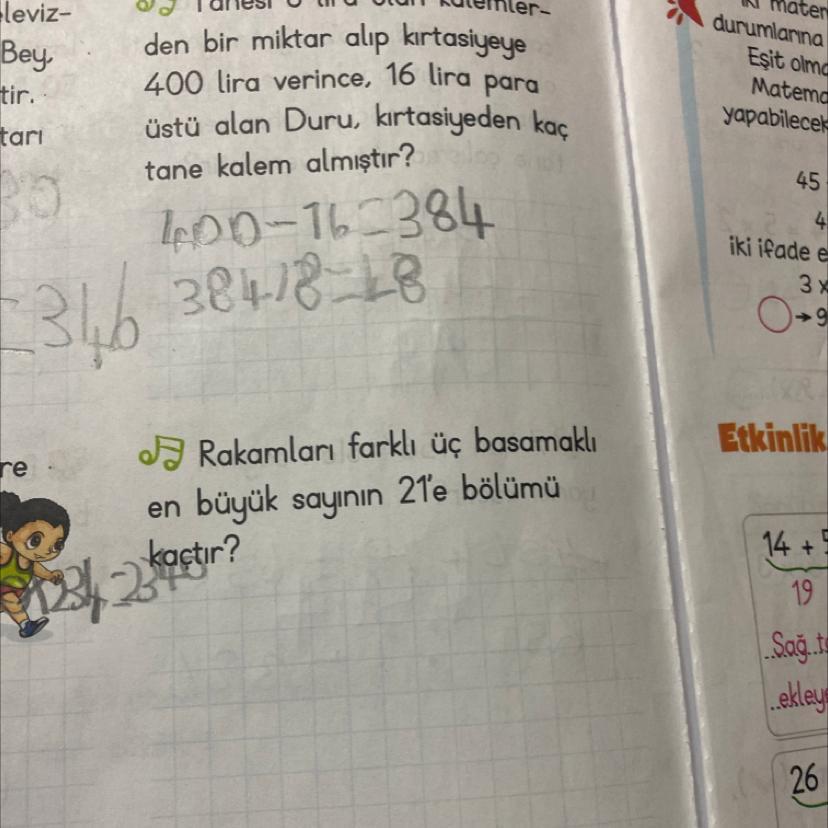 leviz-
Bey,
tir.
tarı
den bir miktar alıp kırtasiyeye
400 lira verince, 16 lira para
üstü alan Duru, kırtasiyeden kaç
tane kalem almıştır?
400-16=384
384/8=48
=346
re
Rakamları farklı üç basamaklı
en büyük sayının 21'e bölümü
kaçtır?
durumlarına
Eşit olma
Matema
yapabilecek
45
4
iki ifade e
3 x
→9
Etkinlik
14 + 5
19
Sağ
ekley
26